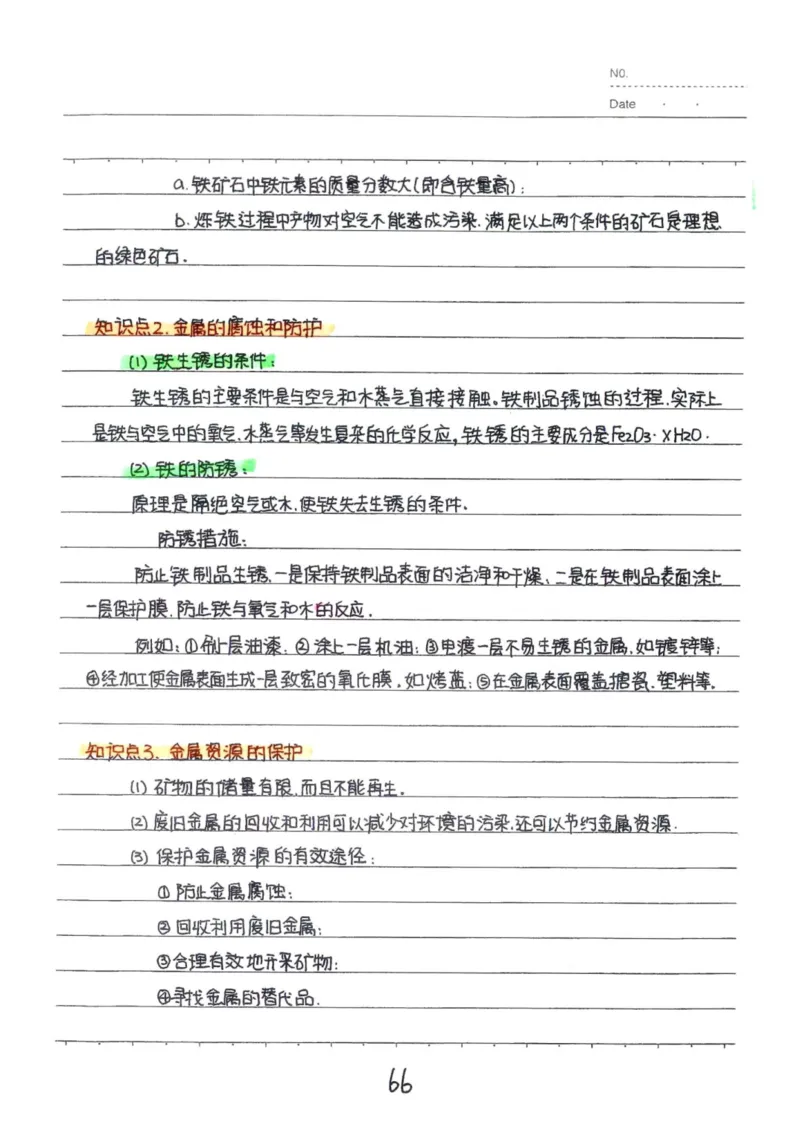 NO.
Date
a. 铁矿石中铁元素的质量分数大(即含铁量高);
b. 炼铁过程中产物对空气不能造成污染.满足以上两个条件的矿石是理想
的绿色矿石.
知识点2.金属的腐蚀和防护
(1) 铁生锈的条件:
铁生锈的主要条件是与空气和水蒸气直接接触。铁制品锈蚀的过程.实际上
是铁与空气中的氧气.水蒸气等发生复杂的化学反应,铁锈的主要成分是Fe2O3·XH2O.
(2) 铁的防锈:
原理是隔绝空气或水.使铁失去生锈的条件.
防锈措施:
防止铁制品生锈.一是保持铁制品表面的洁净和干燥、二是在铁制品表面涂上
一层保护膜.防止铁与氧气和水的反应.
例如:①刷上层油漆.②涂上一层机油;③电渡一层不易生锈的金属,如镀锌等;
④经加工使金属表面生成一层致密的氧化膜.如烤蓝;⑤在金属表面覆盖搪瓷.塑料等.
知识点3.金属资源的保护
(1) 矿物的储量有限.而且不能再生.
(2) 废旧金属的回收和利用可以减少对环境的污染.还可以节约金属资源.
(3) 保护金属资源的有效途径:
①防止金属腐蚀;
②回收利用废旧金属;
③合理有效地开采矿物;
④寻找金属的替代品.
66